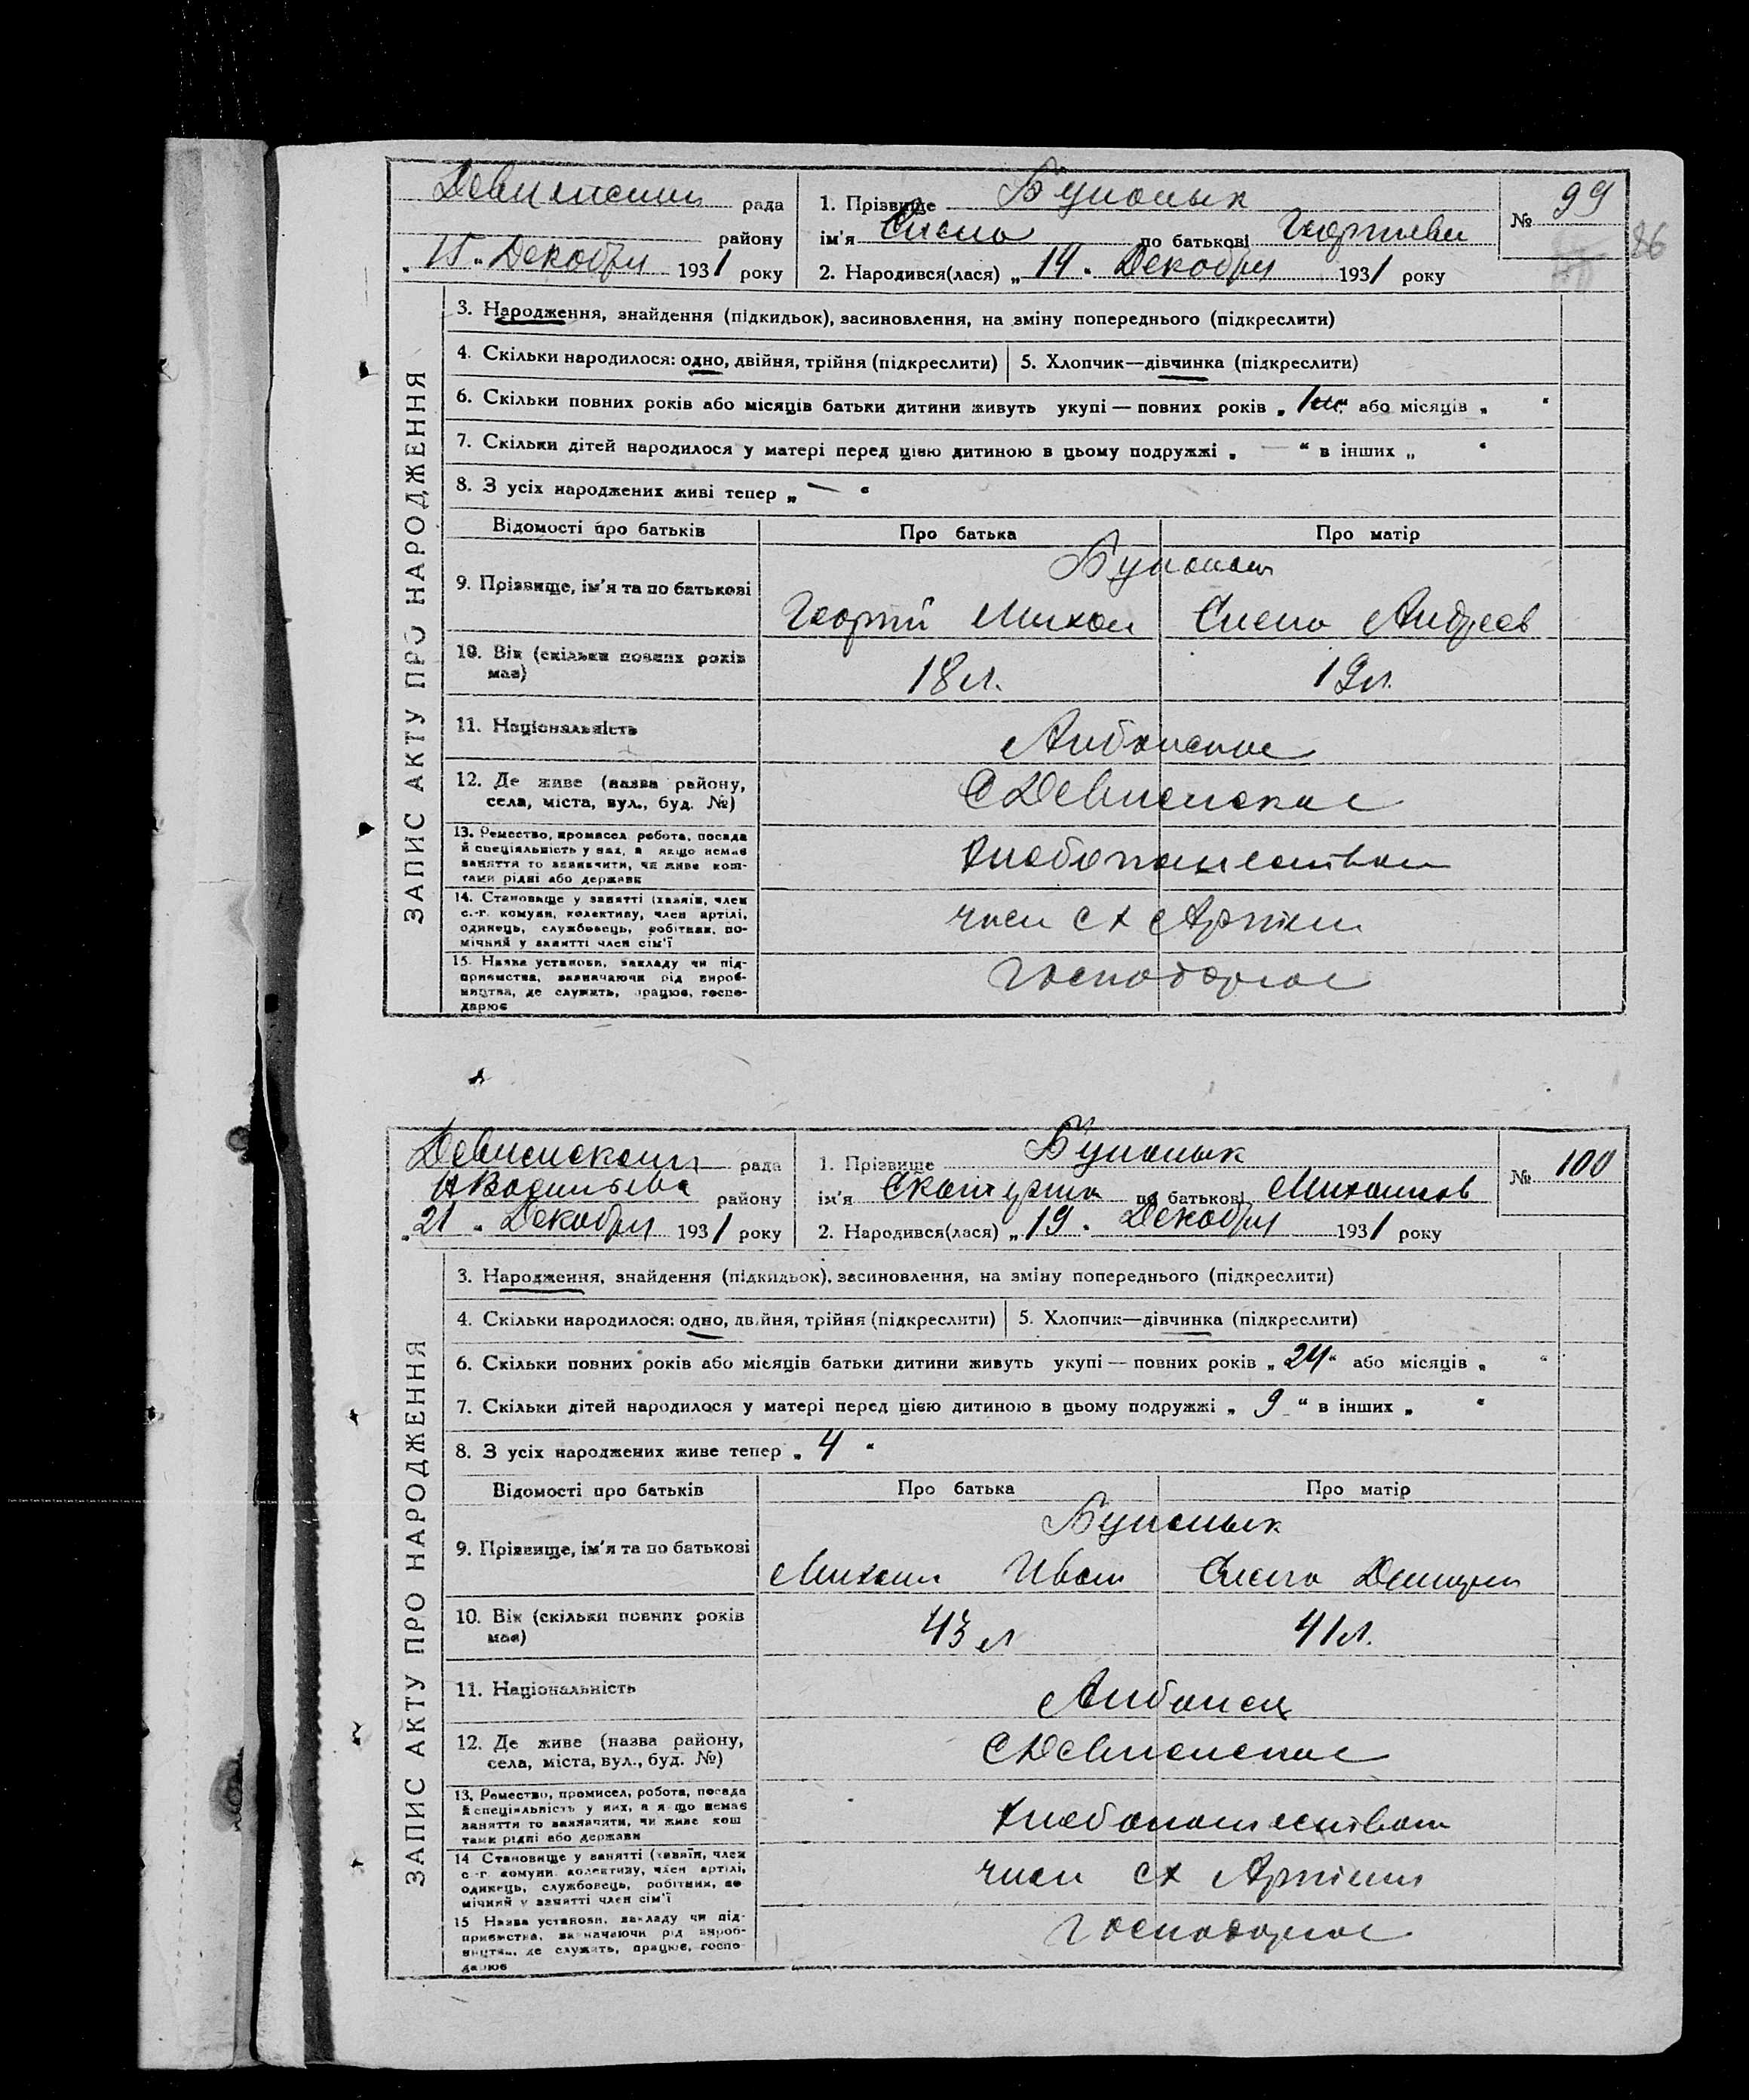 Девненскии рада
району
„15“ Декобри 1931 року
1. Прізвище
ім'я Єлена по батькові Георгиевн
2. Народився(лася) „14“ Декобри 1931 року
№ 99
86
ЗАПИС АКТУ ПРО НАРОДЖЕННЯ
3. Народження, знайдення (підкидьок), засиновлення, на зміну попереднього (підкреслити)
4. Скільки народилося: одно, двійня, трійня (підкреслити)
5. Хлопчик—дівчинка (підкреслити)
6. Скільки повних років або місяців батьки дитини живуть укупі — повних років „ “ або місяців „ “
7. Скільки дітей народилося у матері перед цією дитиною в цьому подружжі „ — “ в інших „ “
8. З усіх народжених живі тепер „ — “
Відомості про батьків
Про батька
Про матір
9. Прізвище, ім'я та по батькові
Георгій Михаи
Єлена Андреев
10. Вік (скільки повних років
має)
18 л.
19 л.
11. Національність
Албанские
12. Де живе (назва району,
села, міста, вул., буд. №)
С Девненское
13. Ремество, промисел робота, посада
й спеціяльність у них, а якщо немає
заняття то зазначити, чи живе кош-
тами рідні або держави
Хлебопашеством
14. Становище у занятті (хазяїн, член
с.-г. комуни, колективу, член артілі,
одинець, службовець, робітник, по-
мічний у занятті член сім'ї
член с х Артіли
15. Назва установи, закладу чи під-
приємства, зазначаючи рід вироб-
ництва, де служить, працює, госпо-
дарює
Господорює
Девненскои рада
НВасильева району
„21“ Декобри 1931 року
1. Прізвище
ім'я Екатерина по батькові Михаилов
2. Народився(лася) „19“ Декобри 1931 року
№ 100
ЗАПИС АКТУ ПРО НАРОДЖЕННЯ
3. Народження, знайдення (підкидьок), засиновлення, на зміну попереднього (підкреслити)
4. Скільки народилося: одно, двійня, трійня (підкреслити)
5. Хлопчик—дівчинка (підкреслити)
6. Скільки повних років або місяців батьки дитини живуть укупі — повних років „24“ або місяців „ “
7. Скільки дітей народилося у матері перед цією дитиною в цьому подружжі „ 9 “ в інших „ “
8. З усіх народжених живе тепер „ 4 “
Відомості про батьків
Про батька
Про матір
9. Прізвище, ім'я та по батькові
Михаил Иван
Єлена Дмитри
10. Вік (скільки повних років
має)
43 л
41 л.
11. Національність
Албанец
12. Де живе (назва району,
села, міста, вул., буд. №)
С Девненское
13. Ремество, промисел, робота, посада
й спеціяльність у них, а якщо немає
заняття то зазначити, чи живе кош
тами рідні або держави
Хлебопашеством
14 Становище у занятті (хазяїн, член
с -г комуни колективу, член артілі,
одинець, службовець, робітник, по
мічний у занятті член сім'ї
член с х Артіли
15 Назва установи, закладу чи під-
приємства, зазначаючи рід вироб-
ництва, де служить, працює, госпо
дарює
Господорює